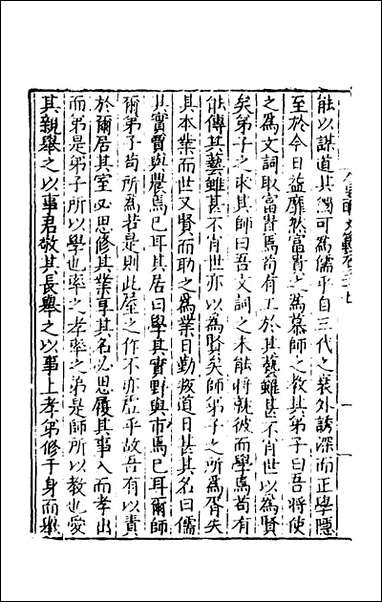 能以謀道其獨可為儒乎自三代之衰外誘深而正學隱
至於今日益靡然富貴之為慕師之教其弟子曰吾將使
之為文詞取富貴焉苟有工於其藝雖甚不肖世以為賢
矣弟子之求其師曰吾文詞之未能將就彼而學焉苟有
能傳其藝雖甚不肖世亦以為賢矣師弟子之所為胥失
其本業而世又賢而助之為業日勤叛道日甚其名曰儒
其實賈與農焉已耳其居曰學其實野與市焉已耳爾師
爾弟子苟所為若是則此屋之作不亦虛乎故吾有以責
於爾居其室必思修其業享其名必思履其事入而孝出
而弟是弟子所以學也率之孝率之弟是師所以教也愛
其親舉之以事君敬其長舉之以事上孝弟修于身而舉